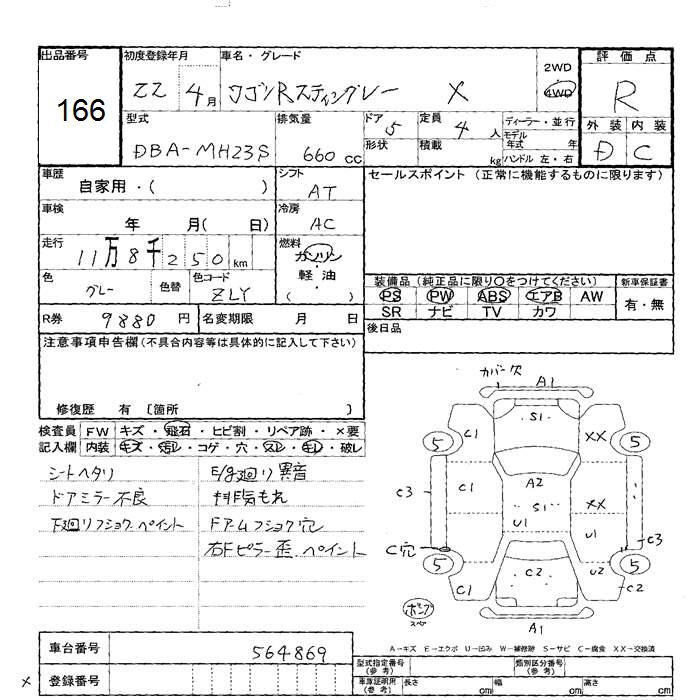 出品番号
166
初度登録年月
22年 4月
車名・グレード
ワゴンRスティングレー X
2WD
4WD
評価点
R
型式
DBA-MH23S
排気量
660 cc
ドア 5
形状
定員 4 人
積載 kg
ディーラー・並行
モデル年式 年
ハンドル 左・右
外装 内装
D C
車歴
自家用・( )
シフト
AT
車検
年 月( 日)
冷房
AC
走行
11万8千250km
燃料
ガソリン
・
軽油
( )
色
グレー
色替
色コード
ZLY
セールスポイント(正常に機能するものに限ります)
装備品(純正品に限り○をつけてください)
PS PW ABS エアB AW
SR ナビ TV カワ
新車保証書
有・無
R券 9880 円
名変期限 月 日
後日品
注意事項申告欄(不具合内容等は具体的に記入して下さい)
修復歴 有 〔箇所 〕
検査員記入欄
FW キズ・飛石・ヒビ割・リペア跡・×要
内装 キズ・汚レ・コゲ・穴・スレ・キレ・破レ
シートヘタリ
E/g廻り異音
ドアミラー不良
排気もれ
下廻リフショク.ペイント
Fアームフショク穴
右Fピラー歪.ペイント
カバー欠
A1
S1
5 C1 XX 5
C3 C1 A2 S1 XX
U1 U1 C3
C穴
5 C2 U2 5
C1 C2
A1
A-キズ E-エクボ U-凹み W-補修跡 S-サビ C-腐食 XX-交換済
車台番号
564869
登録番号
×
型式指定番号
(参考)
類別区分番号
(参考)
車庫証明用
(参考)
長さ cm
幅 cm
高さ cm